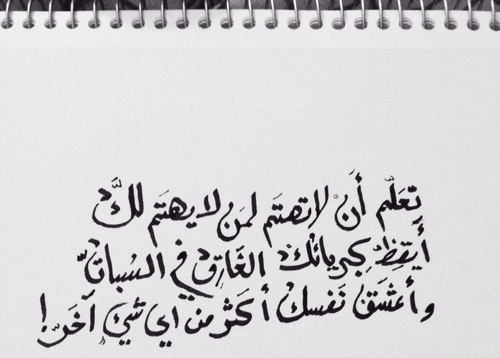 تعلّم أن لا تهتم لمن لا يهتم لكَ
أيقِظ كبريائك الغارق في السبات
وأعشق نفسك أكثر من اي شيء آخر!